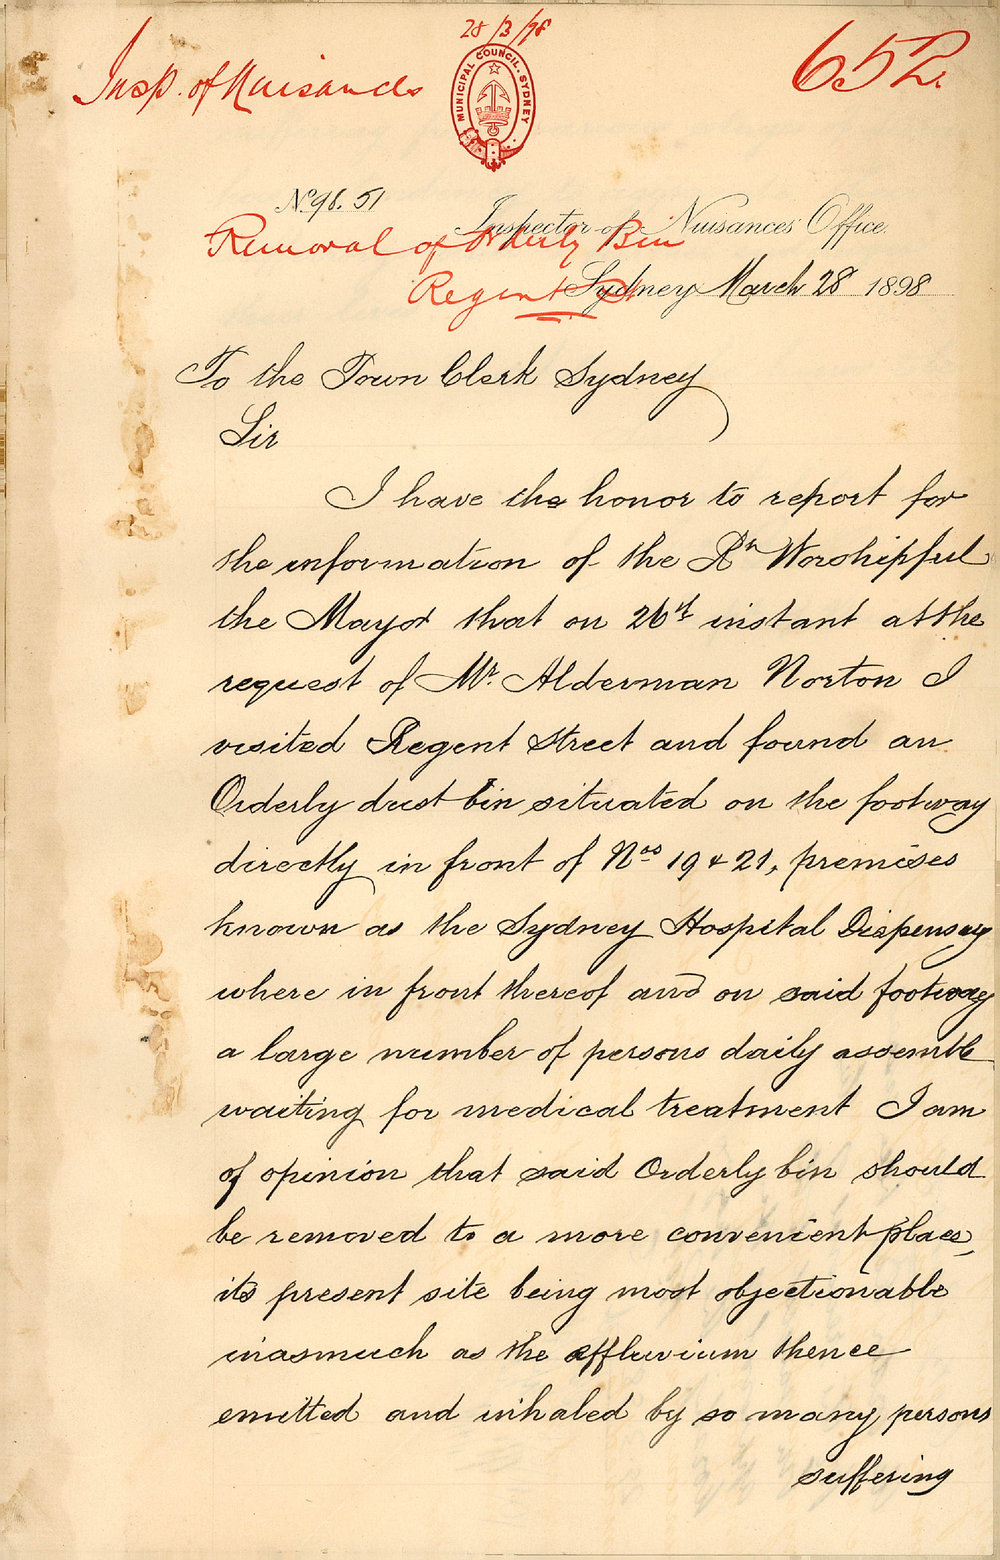 28/3/98
Insp. of Nuisances
652
MUNICIPAL COUNCIL. SYDNEY
No. 98. 51
Inspector of Nuisances Office.
Removal of Orderly Bin
Regent St
Sydney March 28 1898
To the Town Clerk Sydney
Sir
I have the honor to report for
the information of the Rt Worshipful
the Mayor that on 26th instant at the
request of Mr. Alderman Norton I
visited Regent Street and found an
Orderly dust bin situated on the footway
directly in front of Nos 19 & 21, premises
known as the Sydney Hospital Dispensary
where in front thereof and on said footway
a large number of persons daily assemble
waiting for medical treatment I am
of opinion that said Orderly bin should
be removed to a more convenient place,
its present site being most objectionable
inasmuch as the effluvium thence
emitted and inhaled by so many persons
suffering